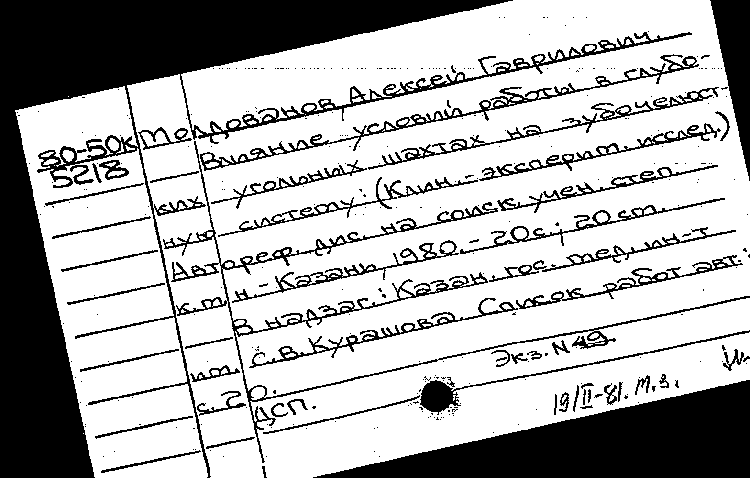 80-50к Молдованов, Алексей Гаврилович.
5218 Влияние условий работы в глубо-
ких угольных шахтах на зубочелюст-
ную систему: (Клин.-эксперим. исслед.)
Автореф. дис. на соиск. учен. степ.
к.м.н. - Казань, 1980. - 20с.; 20 см.
В надзаг.: Казан. гос. мед. ин-т
им. С.В. Курашова. Список работ авт.:
с. 20.
Экз. N 49.
ДСП.
19/II-81. М.З.